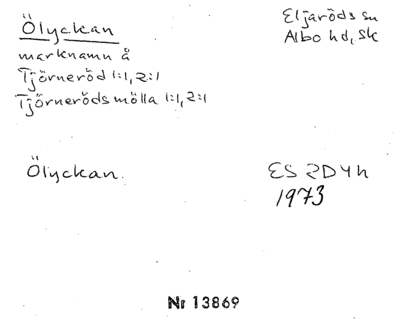 Ölyckan
Eljaröds sn
Albo hd, Sk
marknamn å
Tjörneröd 1:1, 2:1
Tjörneröds mölla 1:1, 2:1
Ölyckan.
ES 2D4h
1973
Nr 13869